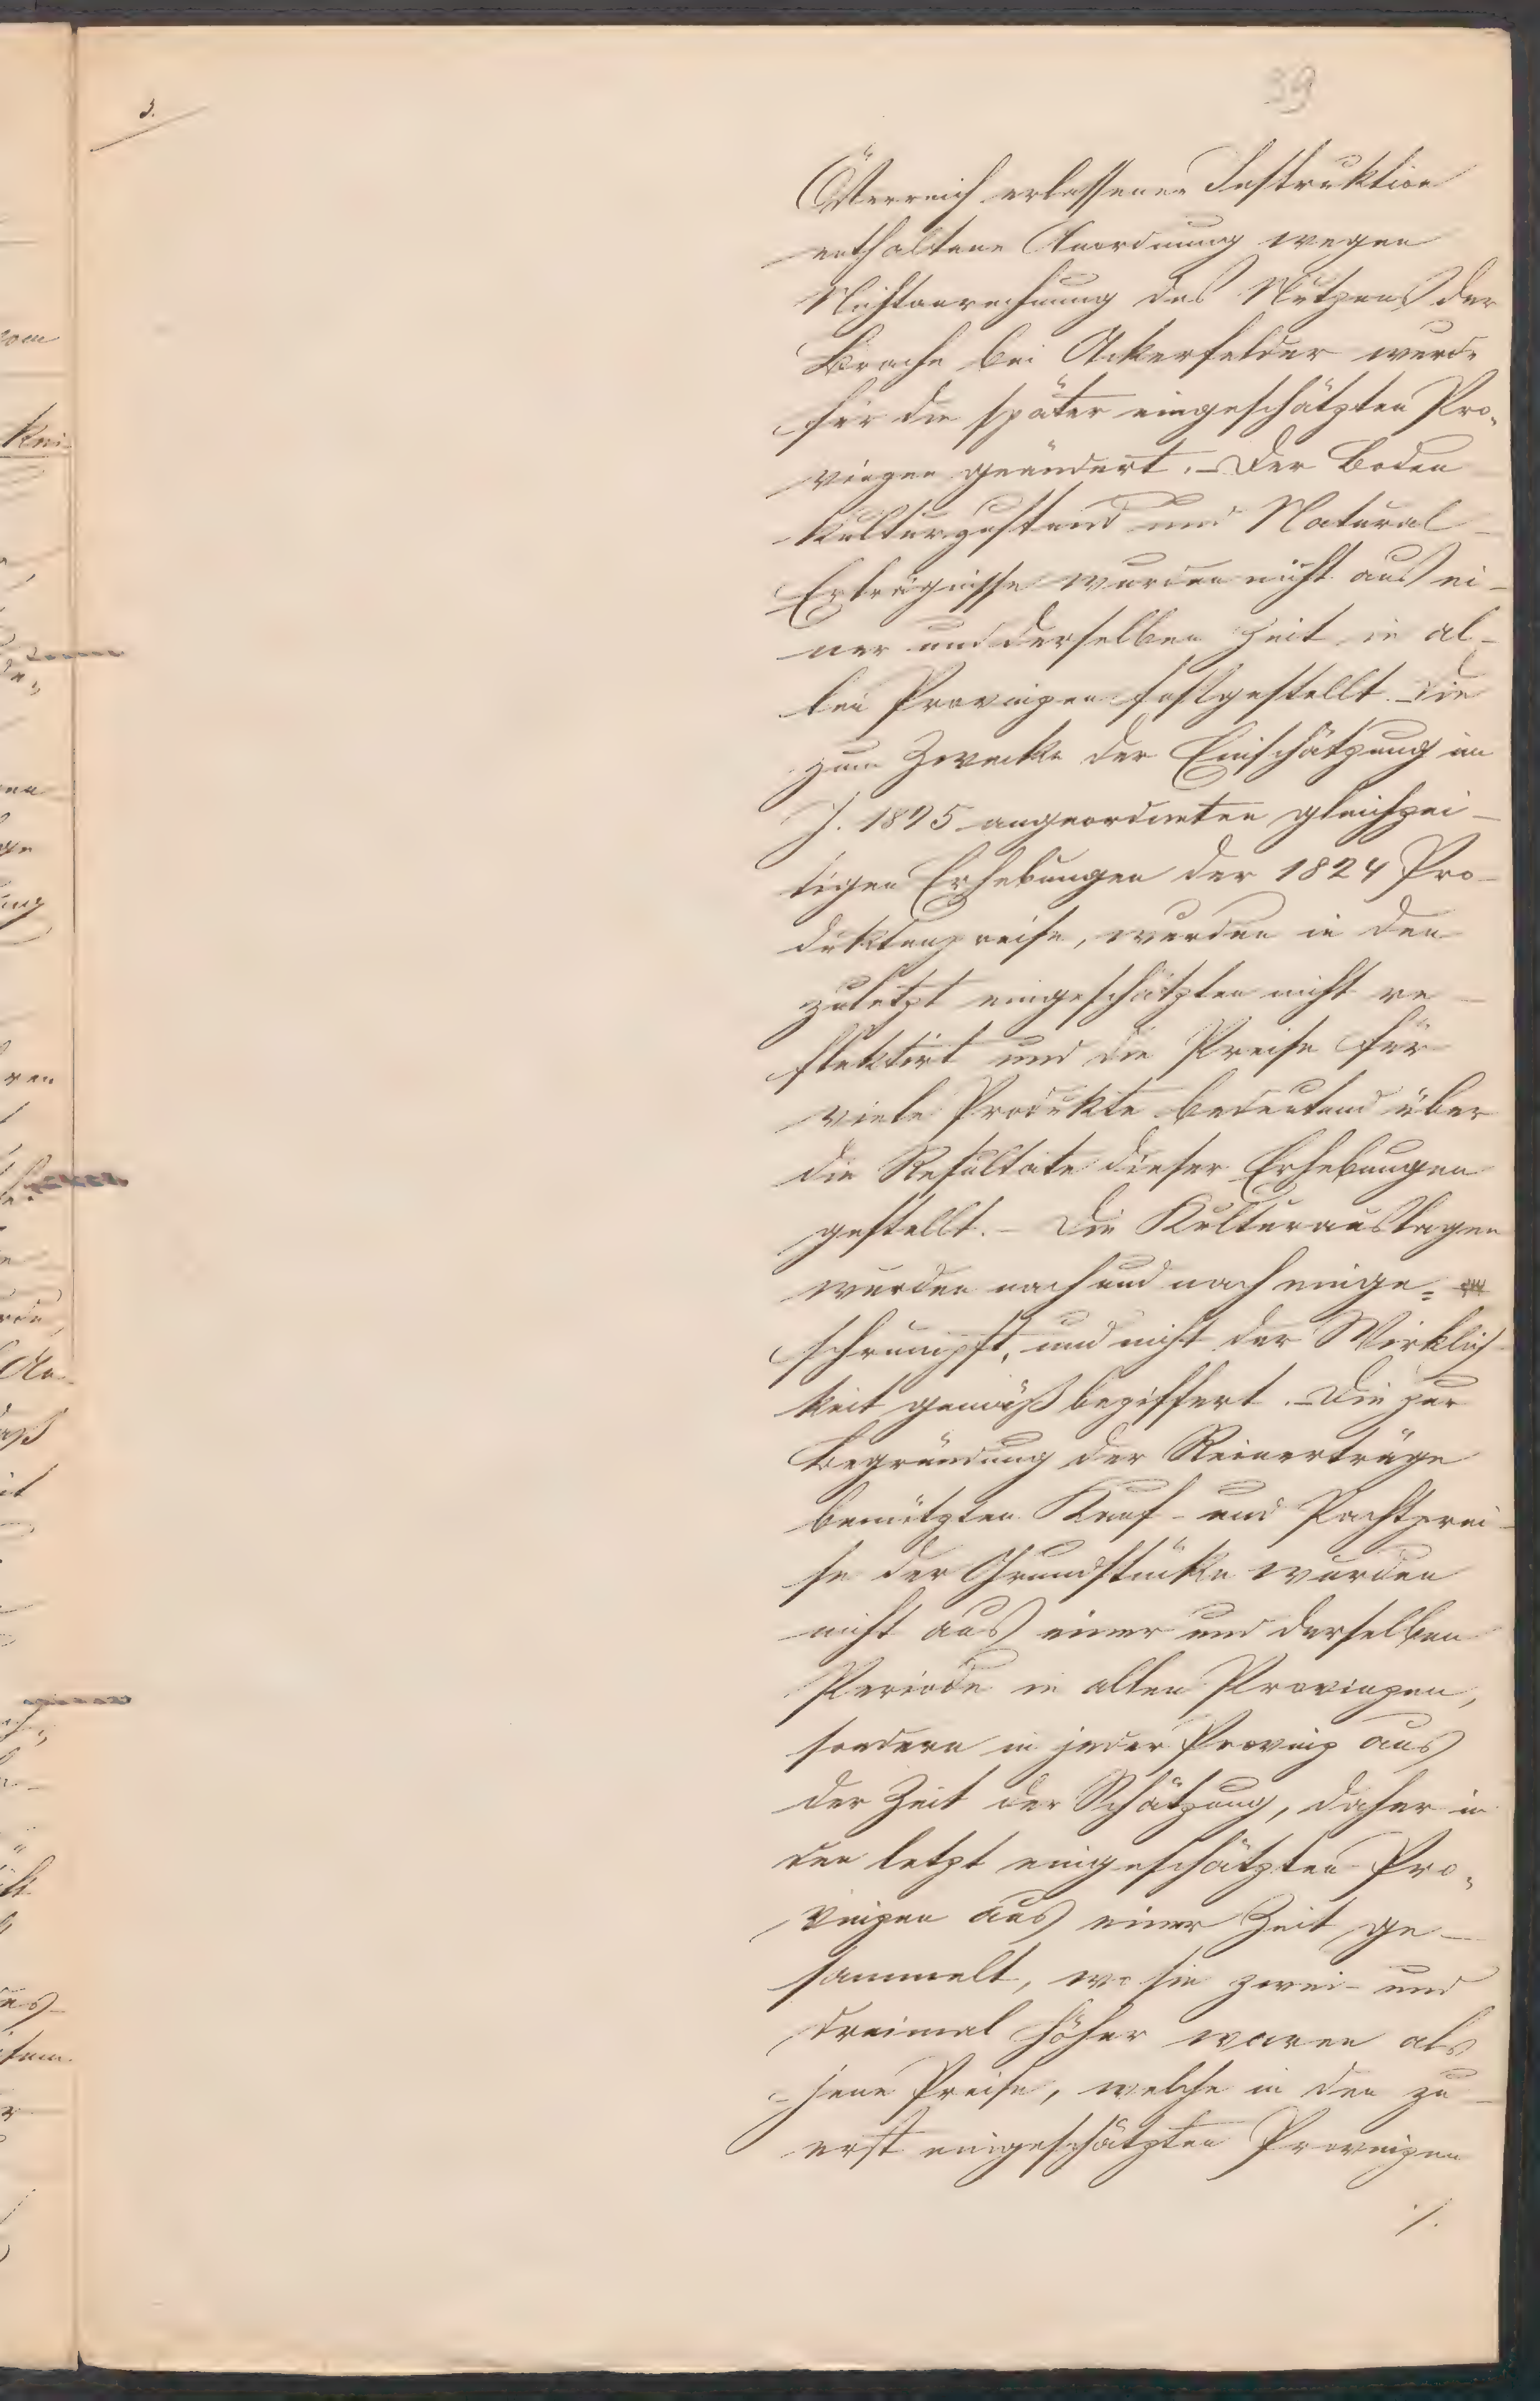 39
3.
Österreich erlassenen Instruktion
enthaltene Anordnung wegen
Nichtanrechnung des Nutzens der
Brache bei Ackerfelder wurde
für die später eingeschätzten Pro„
vinzen geändert. – Der Boden
Kulturzustand und Natural –
Erträgnisse wurden nicht aus ei –
ner und derselben Zeit in al –
len Provinzen festgestellt. – Die
zum Zwecke der Einschätzung im
J. 1825 angeordneten gleichzei –
tigen Erhebungen der 1824 Pro –
duktenpreise, wurden in den
zuletzt eingeschätzten nicht re –
flektirt und die Preise für
viele Produkte bedeutend über
die Resultate dieser Erhebungen
gestellt. – Die Kulturauslagen
wurden nach und nach einge=
schrumpft, und nicht der Wirklich
keit gemäß beziffert. – Die zur
Begründung der Reinerträge
benützten Kauf- und Pachtprei –
se der Grundstücke wurden
nicht aus einer und derselben
Periode in allen Provinzen,
sondern in jeder Provinz aus
der Zeit der Schätzung, daher in
den letzt eingeschätzten Pro„
vinzen aus einer Zeit ge –
sammelt, wo sie zwei- und
dreimal höher waren als
jene Preise, welche in den zu –
erst eingeschätzten Provinzen
./.